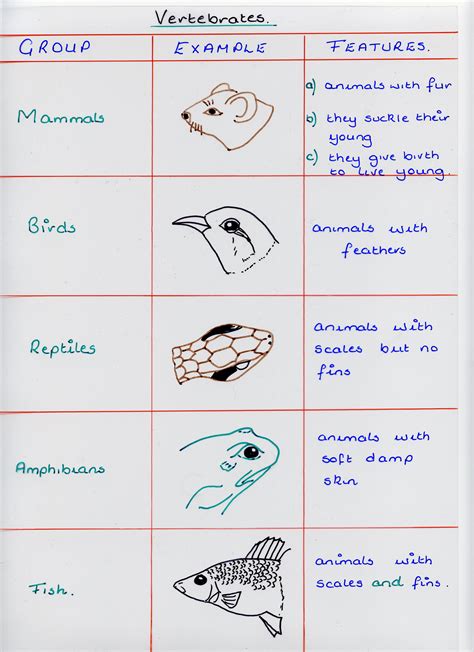 Vertebrates.
GROUP EXAMPLE FEATURES.
Mammals
a) animals with fur
b) they suckle their
young
c) they give birth
to live young.
Birds
animals with
feathers
Reptiles
animals with
scales but no
fins
Amphibians
animals with
soft damp
skin
Fish.
animals with
scales and fins.